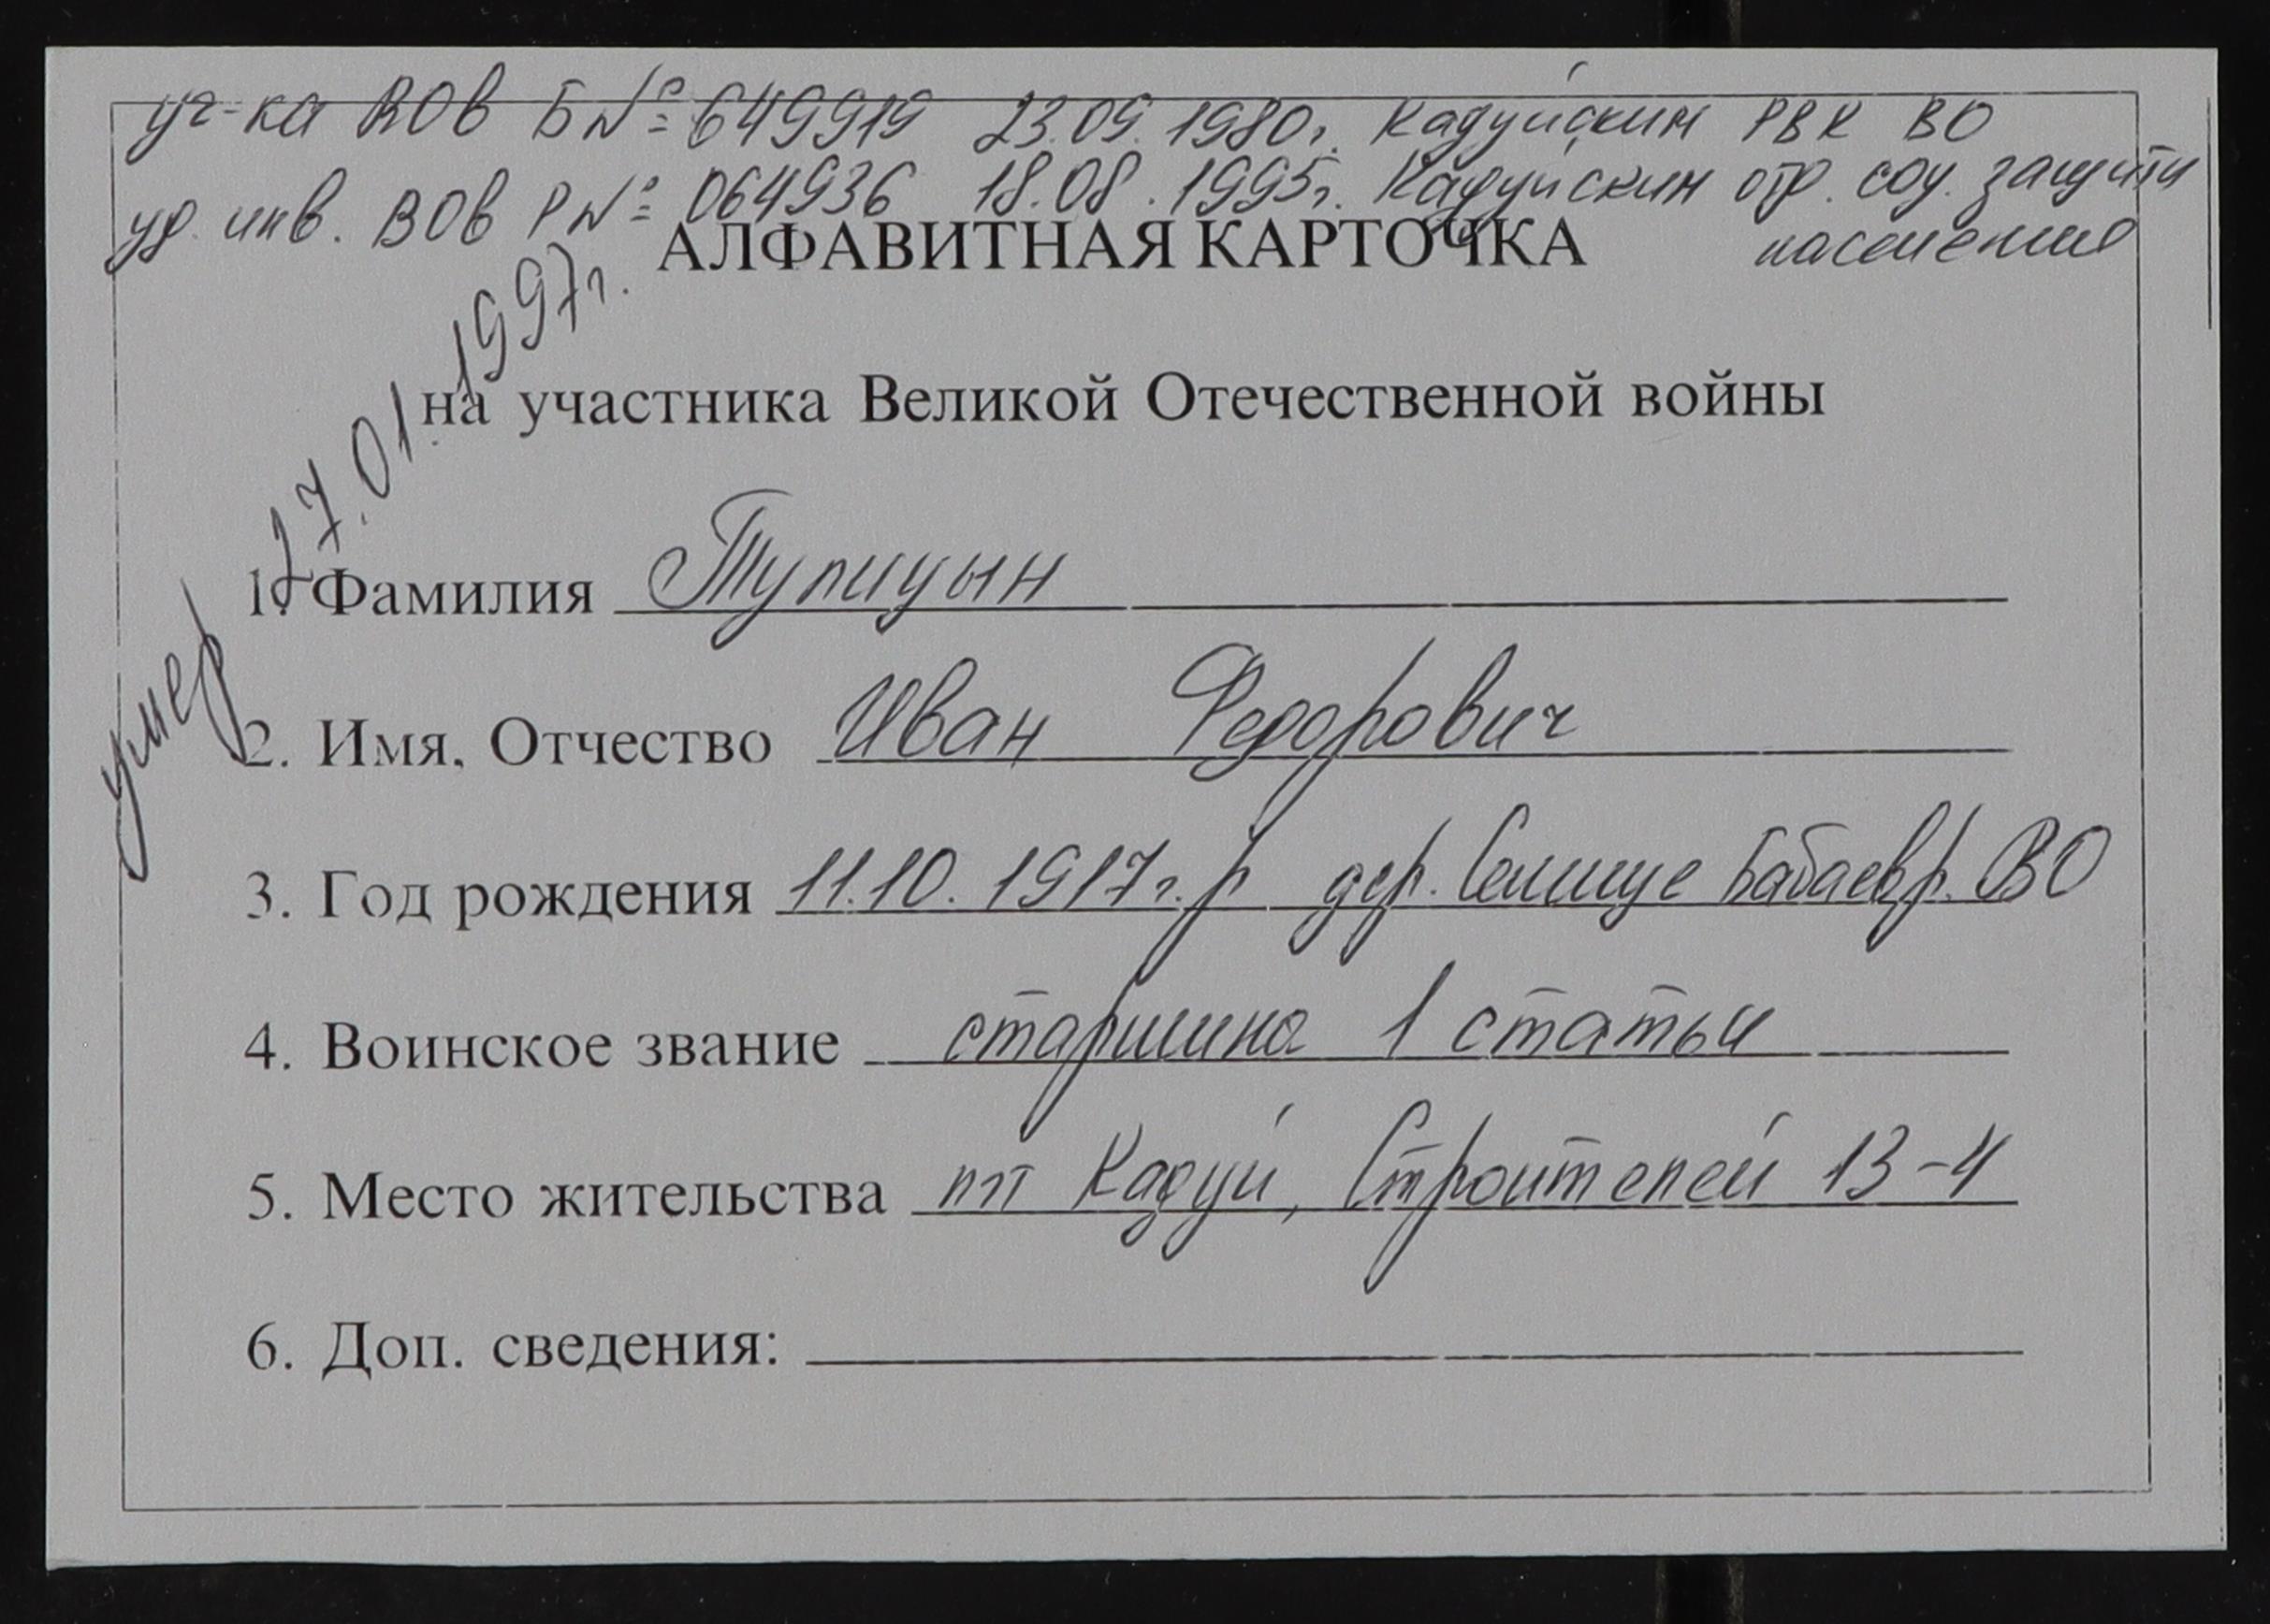 уч-ка ВОв Б № 649919 23.09.1980г. Кадуйским РВК ВО
уд. инв. ВОв Р № 064936 18.08.1995г. Кадуйским отд. соц. защиты
населения
АЛФАВИТНАЯ КАРТОЧКА
на участника Великой Отечественной войны
умер 27.01.1997г.
1. Фамилия Тупицын
2. Имя, Отчество Иван Федорович
3. Год рождения 11.10.1917г.р дер. Селище Бабаев р. ВО
4. Воинское звание старшина 1 статьи
5. Место жительства пгт Кадуй, Строителей 13-4
6. Доп. сведения: